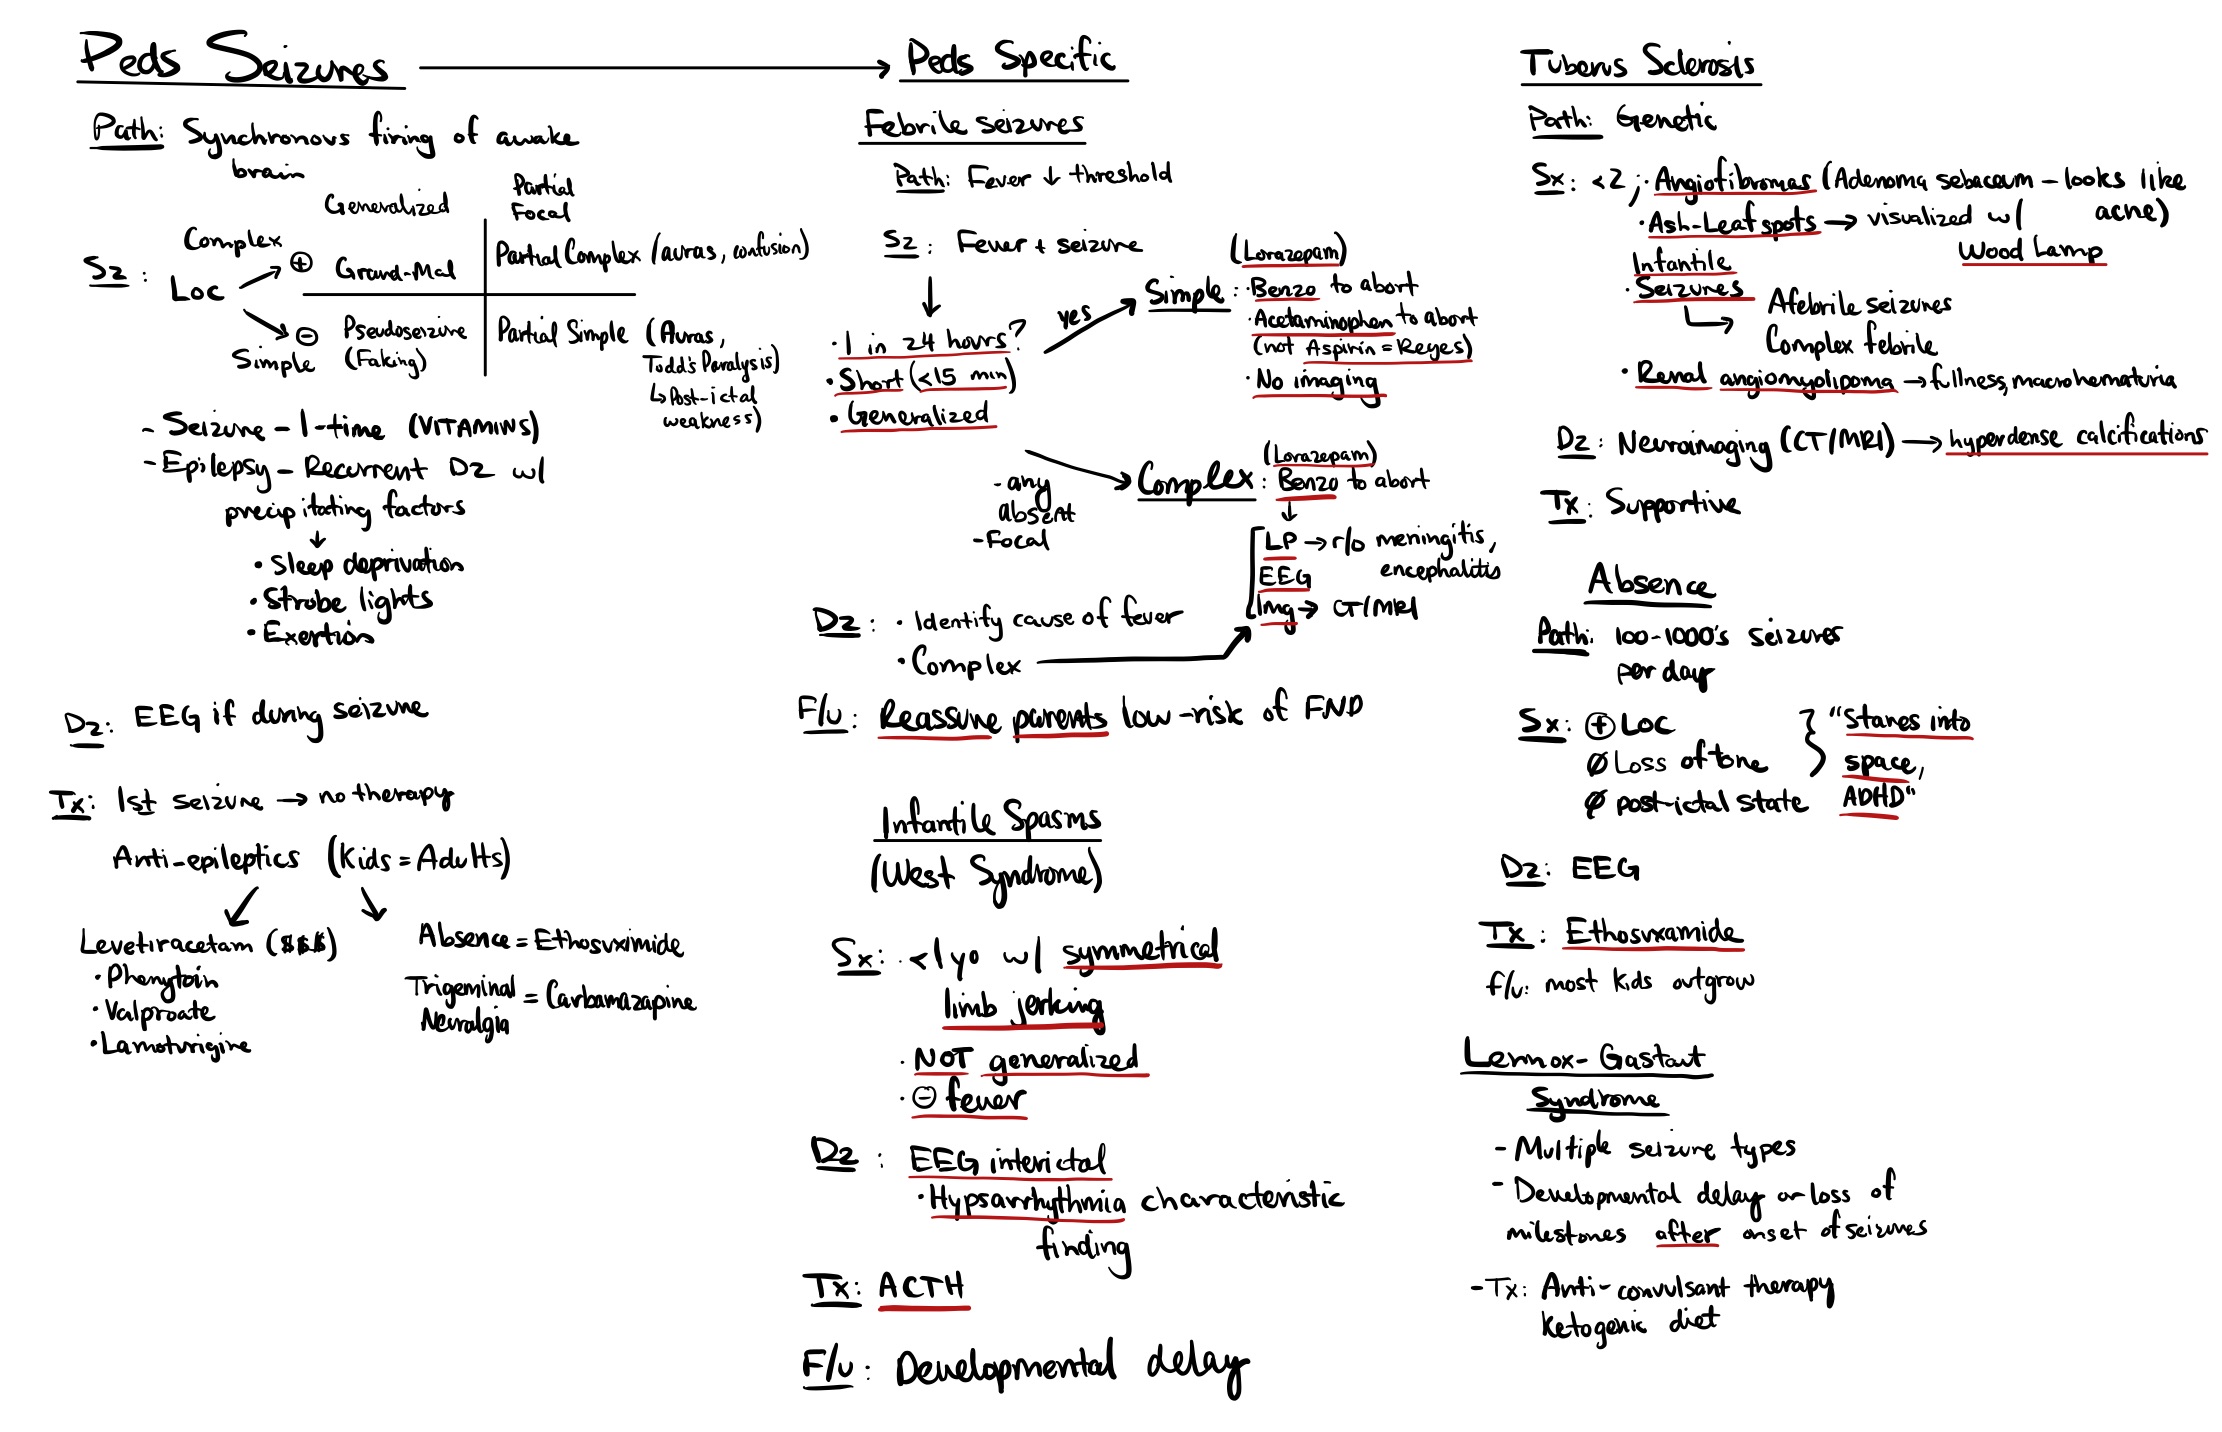 Peds Seizures
Path: Synchronous firing of awake
brain
Generalized
Partial
Focal
Sz :
LOC
Complex
⊕
Grand-Mal
Partial Complex (auras, confusion)
⊖
Simple
Pseudoseizure
(Faking)
Partial Simple (Auras,
Todd's Paralysis)
↳ Post-ictal
weakness)
- Seizure - 1-time (VITAMINS)
- Epilepsy - Recurrent Dz w/
precipitating factors
↓
• Sleep deprivation
• Strobe lights
• Exertion
Dz: EEG if during seizure
Tx: 1st seizure → no therapy
Anti-epileptics (Kids = Adults)
Levetiracetam ($$$)
• Phenytoin
• Valproate
• Lamoturigine
Absence = Ethosuximide
Trigeminal
Neuralgia = Carbamazapine
Peds Specific
Febrile seizures
Path: Fever ↓ threshold
Sz : Fever + seizure
• 1 in 24 hours?
• Short (<15 min)
• Generalized
yes
(Lorazepam)
Simple : • Benzo to abort
• Acetaminophen to abort
(not Aspirin = Reyes)
• No imaging
- any
absent
- Focal
(Lorazepam)
Complex : Benzo to abort
↓
LP → r/o meningitis,
encephalitis
EEG
Img → CT/MRI
Dz : • Identify cause of fever
• Complex
F/u : Reassure parents low-risk of FND
Infantile Spasms
(West Syndrome)
Sx: • <1 yo w/ symmetrical
limb jerking
• NOT generalized
• ⊖ fever
Dz : EEG interictal
• Hypsarrhythmia characteristic
finding
Tx: ACTH
F/u : Developmental delay
Tuberus Sclerosis
Path: Genetic
Sx: <2 ; • Angiofibromas (Adenoma sebaceum - looks like
acne)
• Ash-Leaf spots → visualized w/
Wood Lamp
Infantile
• Seizures
Afebrile seizures
Complex febrile
• Renal angiomyolipoma → fullness, macrohematuria
Dz: Neuroimaging (CT/MRI) → hyperdense calcifications
Tx: Supportive
Absence
Path: 100-1000's seizures
per day
Sx: ⊕ LOC
Ø Loss of tone
Ø post-ictal state
"Stares into
space,
ADHD"
Dz: EEG
Tx : Ethosuxamide
f/u: most kids outgrow
Lennox-Gastaut
Syndrome
- Multiple seizure types
- Developmental delay or loss of
milestones after onset of seizures
- Tx: Anti-convulsant therapy
Ketogenic diet